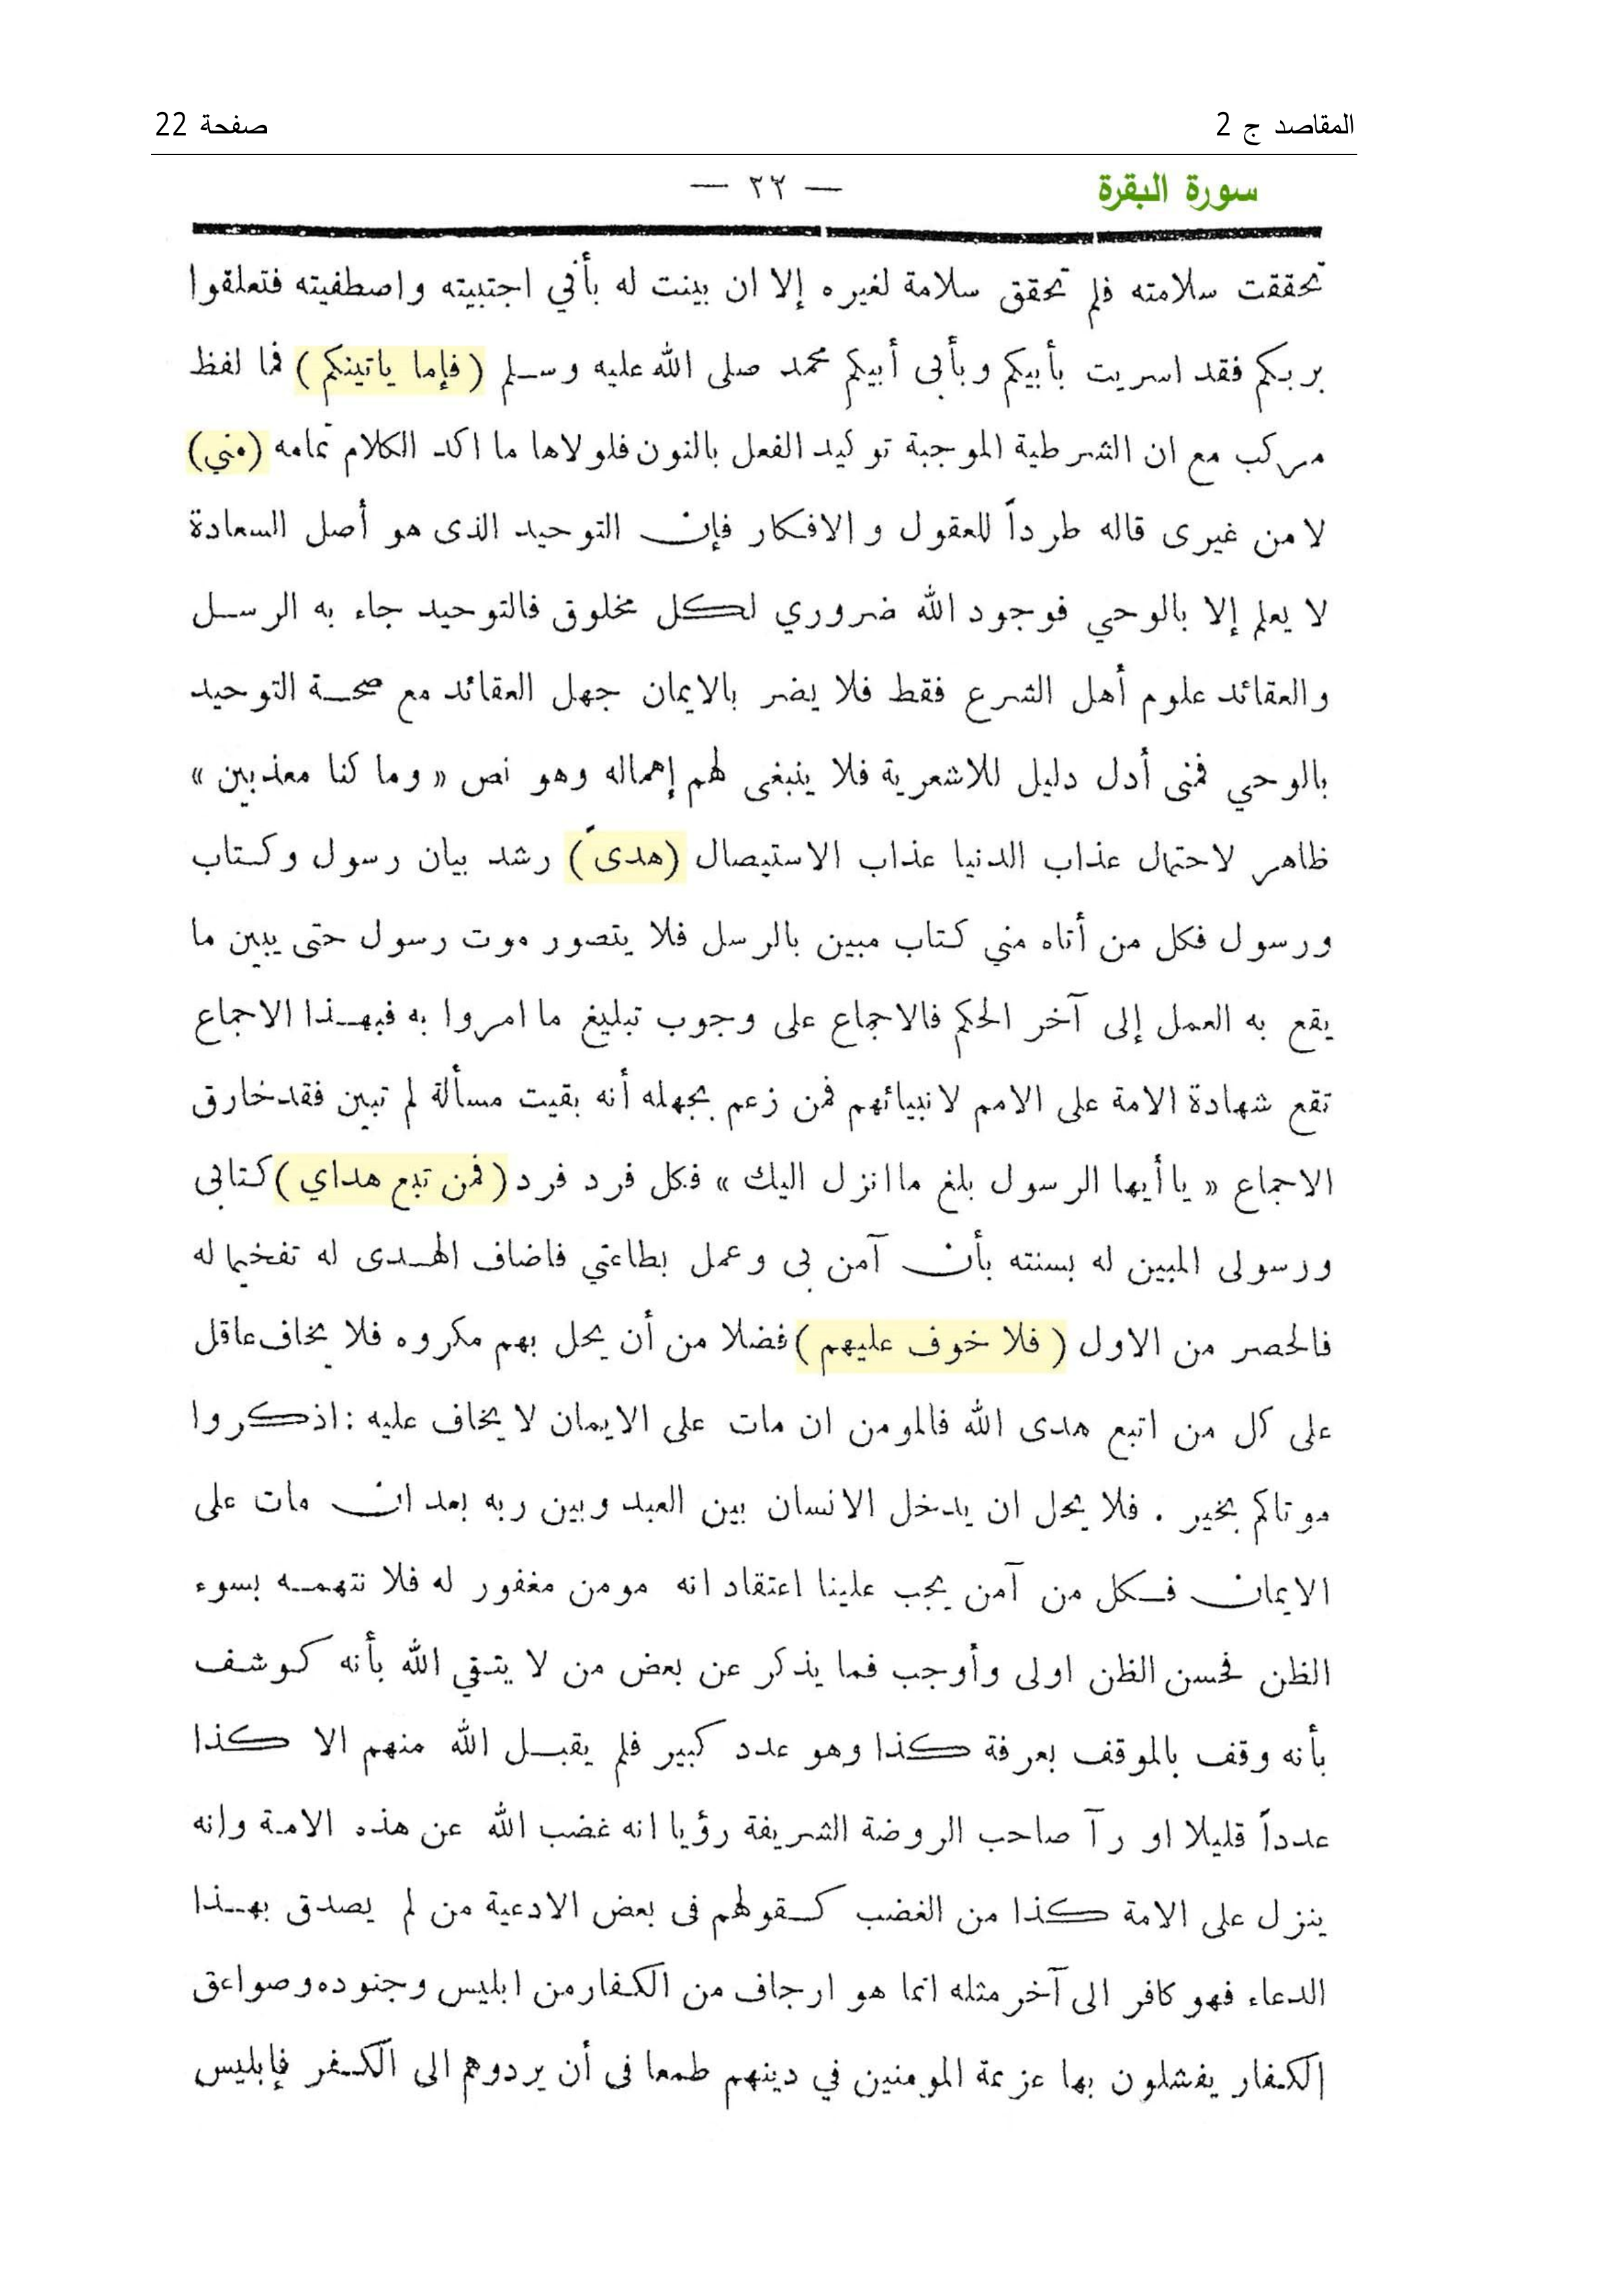 المقاصد ج 2
صفحة 22
سورة البقرة
— ٢٢ —
تحققت سلامته فلم تحقق سلامة لغيره إلا ان بينت له بأني اجتبيته واصطفيته فتعلقوا
بربكم فقد اسريت بأبيكم وبأبى أبيكم محمد صلى الله عليه وسلم ( فإما ياتينكم ) فما لفظ
مركب مع ان الشرطية الموجبة توكيد الفعل بالنون فلولاها ما اكد الكلام تمامه (مني)
لا من غيرى قاله طرداً للعقول والافكار فإن التوحيد الذى هو أصل السعادة
لا يعلم إلا بالوحي فوجود الله ضروري لكل مخلوق فالتوحيد جاء به الرسل
والعقائد علوم أهل الشرع فقط فلا يضر بالايمان جهل العقائد مع صحة التوحيد
بالوحي فمنى أدل دليل للاشعرية فلا ينبغى لهم إهماله وهو نص « وما كنا معذبين »
ظاهر لاحتمال عذاب الدنيا عذاب الاستيصال (هدىً) رشد بيان رسول وكتاب
ورسول فكل من أتاه مني كتاب مبين بالرسل فلا يتصور موت رسول حتى يبين ما
يقع به العمل إلى آخر الحكم فالاجماع على وجوب تبليغ ما امروا به فبهذا الاجماع
تقع شهادة الامة على الامم لانبيائهم فمن زعم بجهله أنه بقيت مسألة لم تبين فقد خارق
الاجماع « يا أيها الرسول بلغ ما انزل اليك » فكل فرد فرد ( فمن تبع هداي ) كتابى
ورسولى المبين له بسنته بأن آمن بى وعمل بطاعتي فاضاف الهدى له تفخيما له
فالحصر من الاول ( فلا خوف عليهم ) فضلا من أن يحل بهم مكروه فلا يخاف عاقل
على كل من اتبع هدى الله فالمومن ان مات على الايمان لا يخاف عليه : اذكروا
موتاكم بخير . فلا يحل ان يدخل الانسان بين العبد وبين ربه بعد ان مات على
الايمان فكل من آمن يجب علينا اعتقاد انه مومن مغفور له فلا نتهمه بسوء
الظن فحسن الظن اولى وأوجب فما يذكر عن بعض من لا يتقي الله بأنه كوشف
بأنه وقف بالموقف بعرفة كذا وهو عدد كبير فلم يقبل الله منهم الا كذا
عدداً قليلا او رآ صاحب الروضة الشريفة رؤيا انه غضب الله عن هذه الامة وانه
ينزل على الامة كذا من الغضب كقولهم فى بعض الادعية من لم يصدق بهذا
الدعاء فهو كافر الى آخر مثله انما هو ارجاف من الكفار من ابليس وجنوده وصواعق
الكفار يفشلون بها عزيمة المومنين في دينهم طمعا فى أن يردوهم الى الكفر فإبليس